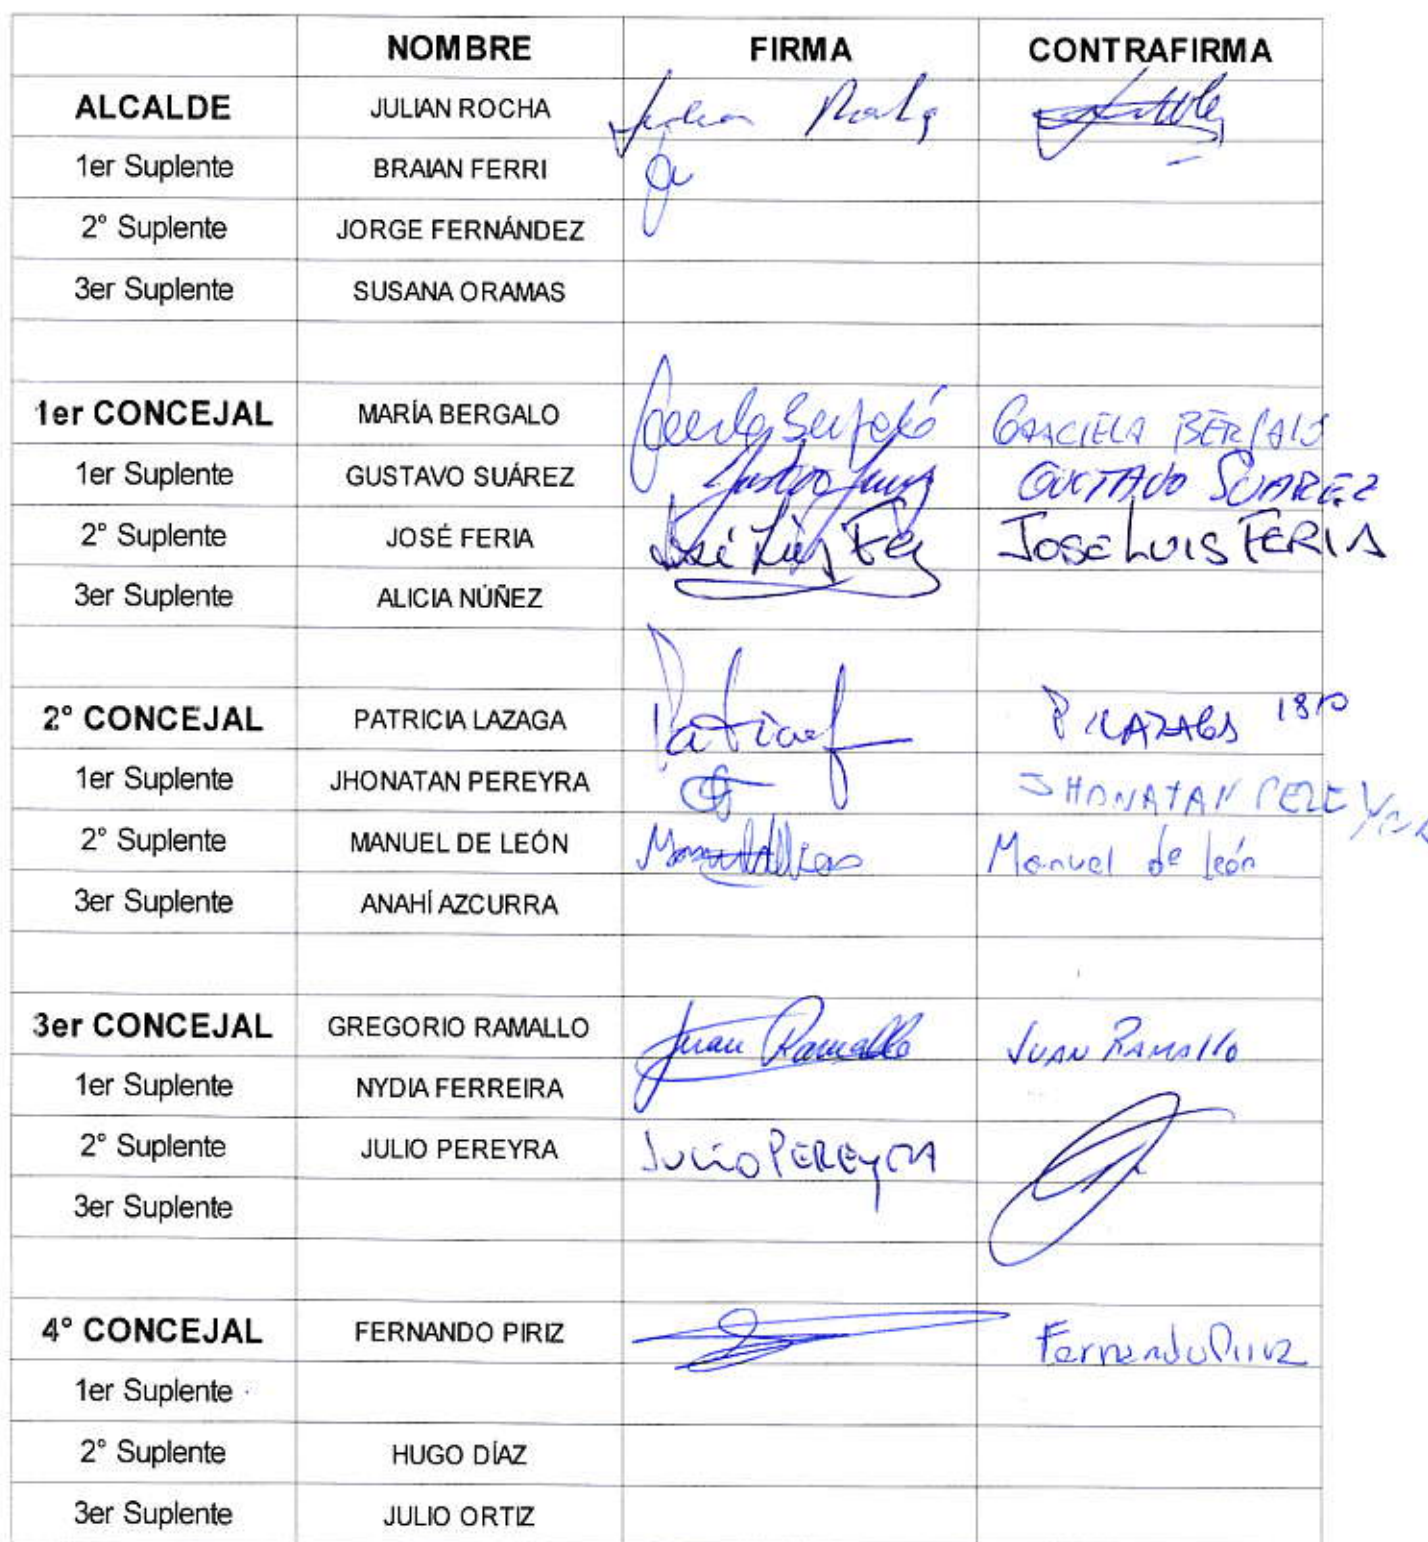 NOMBRE FIRMA CONTRAFIRMA
ALCALDE JULIAN ROCHA Julian Rocha
1er Suplente BRAIAN FERRI
2° Suplente JORGE FERNÁNDEZ
3er Suplente SUSANA ORAMAS
1er CONCEJAL MARÍA BERGALO GRACIELA BERGALO
1er Suplente GUSTAVO SUÁREZ Gustavo Suarez GUSTAVO SUAREZ
2° Suplente JOSÉ FERIA José Luis JOSE LUIS FERIA
3er Suplente ALICIA NÚÑEZ
2° CONCEJAL PATRICIA LAZAGA P LAZAGA
1er Suplente JHONATAN PEREYRA JHONATAN PEREYRA
2° Suplente MANUEL DE LEÓN Manuel de león
3er Suplente ANAHÍ AZCURRA
3er CONCEJAL GREGORIO RAMALLO Juan Ramallo JUAN RAMALLO
1er Suplente NYDIA FERREIRA
2° Suplente JULIO PEREYRA JULIO PEREYRA
3er Suplente
4° CONCEJAL FERNANDO PIRIZ Fernando Piriz
1er Suplente
2° Suplente HUGO DÍAZ
3er Suplente JULIO ORTIZ